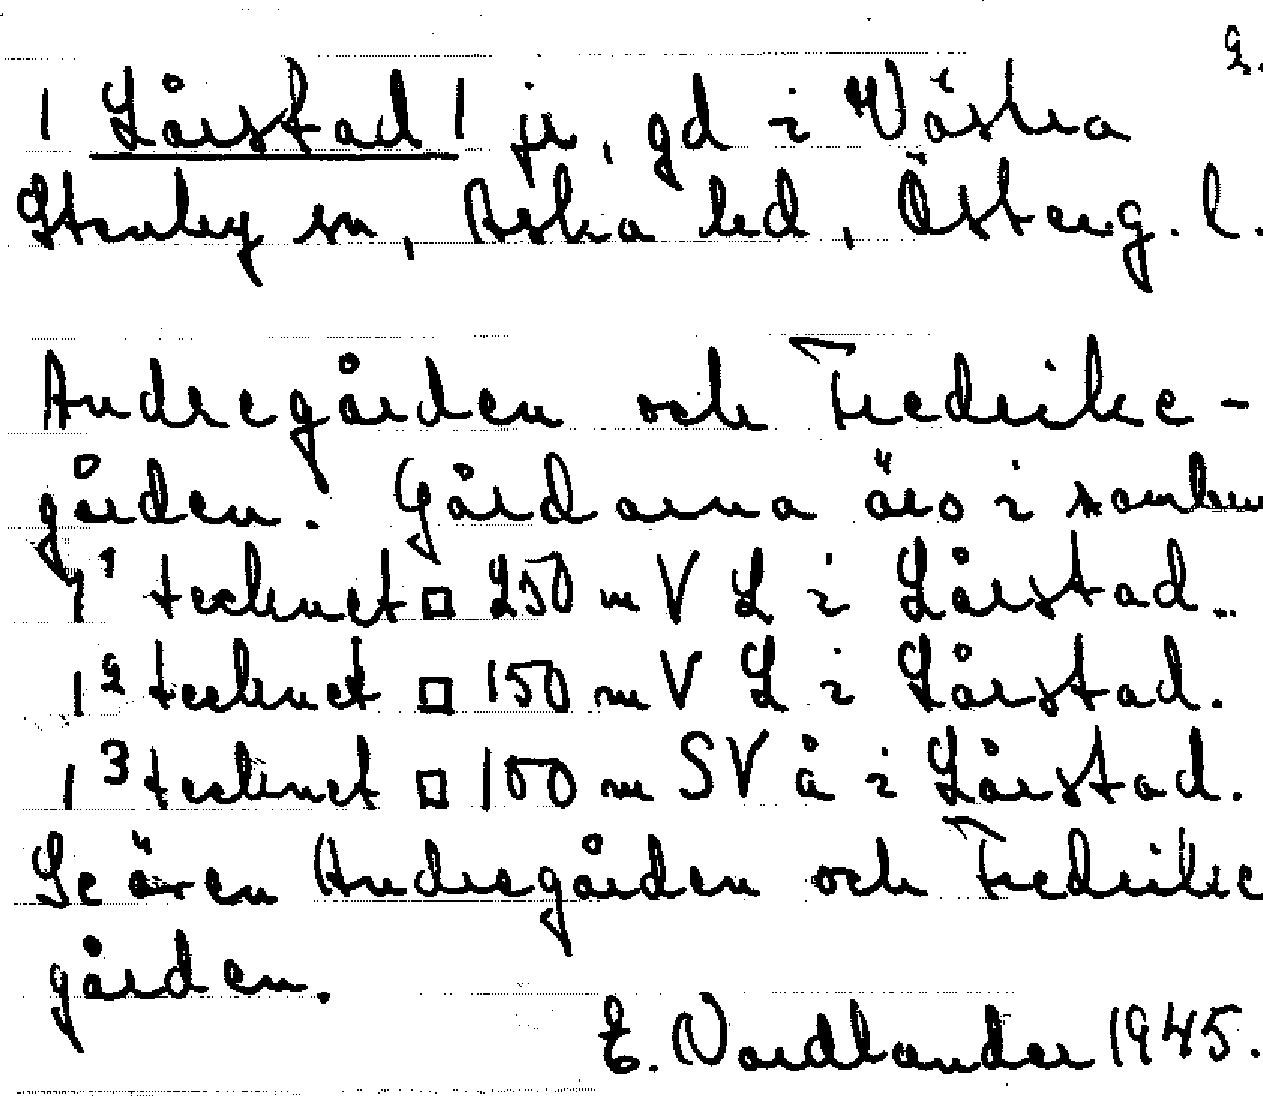 2.
| Lårstad | jr, gd i Västra
Stenby sn, Aska hd, Österg. l.
Andregården och Fredrike-
gården. Gårdarna äro i sambruk
1¹ tecknet □ 250 m V L i Lårstad.
1² tecknet □ 150 m V L i Lårstad.
1³ tecknet □ 100 m SV å i Lårstad.
Se även Andregården och Fredrike
gården.
E. Nordlander 1945.